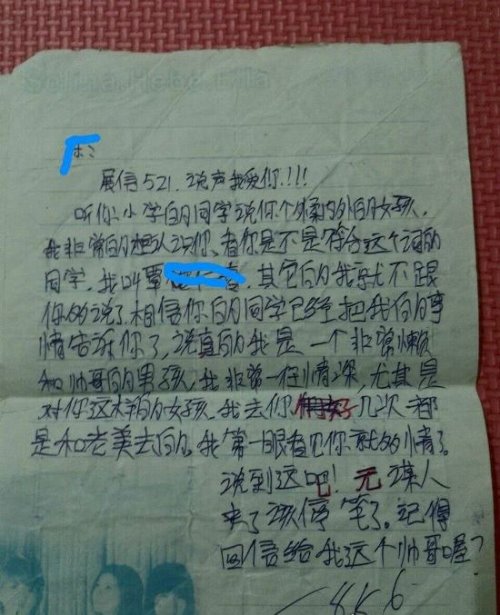 展信521.说声我爱你!!!
听你小学的同学说你个外柔内的女孩,
我非常的想认识你.看你是不是符合这个词的
同学.我叫覃 .其它的我就不跟
你的说了.相信你的同学已经把我的事
情告诉你了,说真的我是一个非常懒
和帅哥的男孩.我非常一往情深,尤其是
对你这样的女孩.我去你 几次都
是和老美去的.我第一眼看见你就的情了.
说到这吧!元谋人
来了该停笔了.记得
回信给我这个帅哥喔?